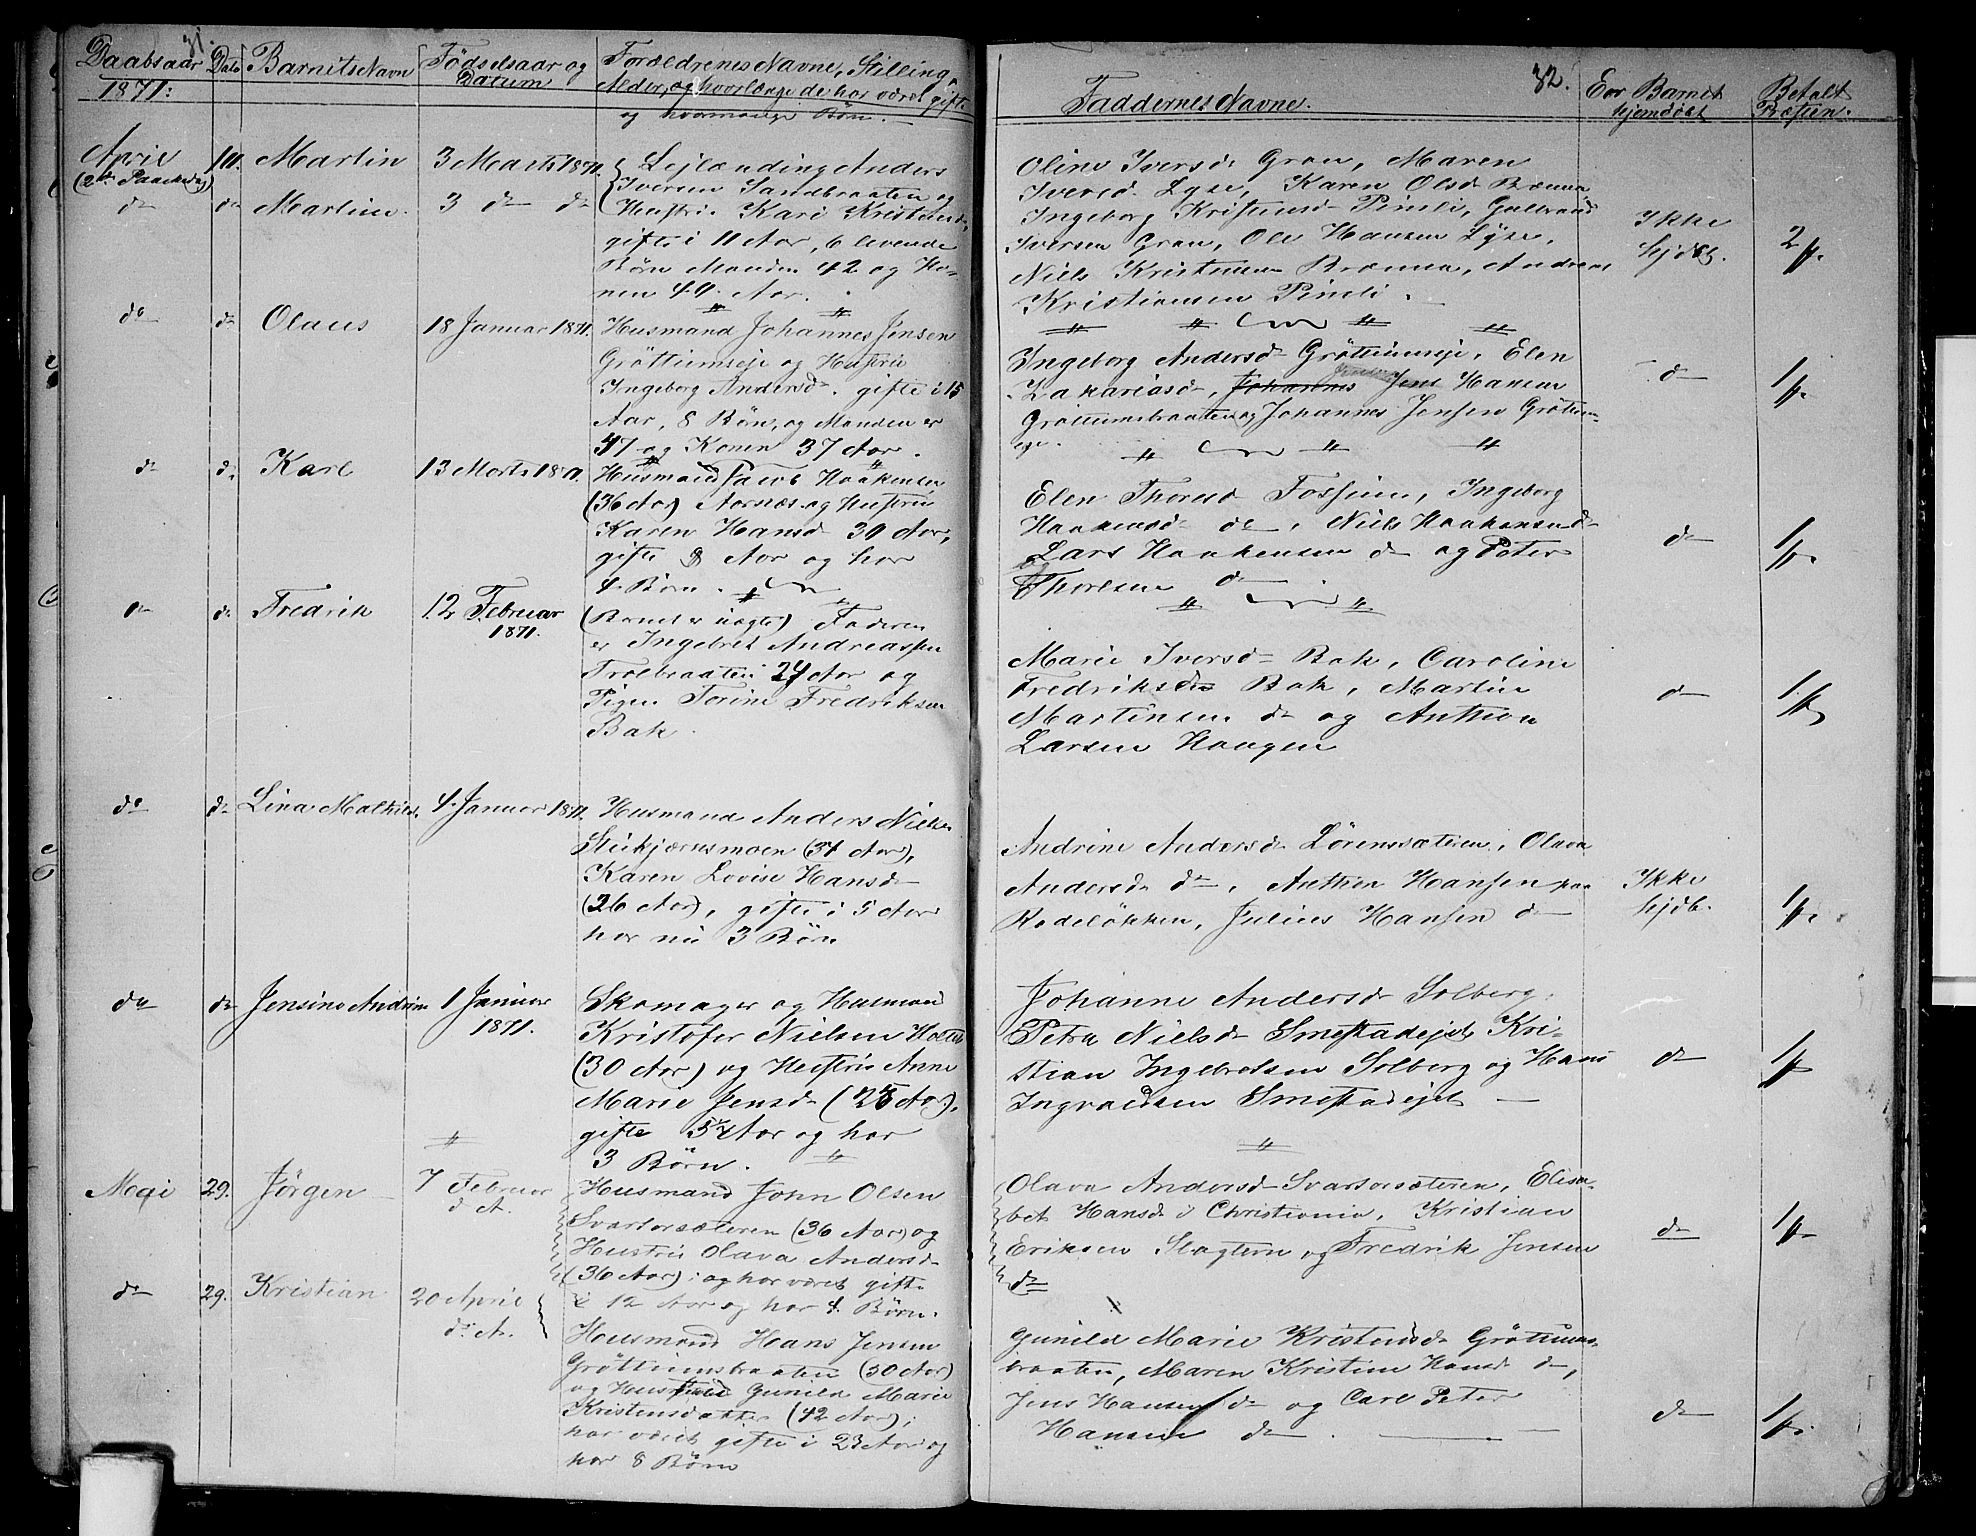 31.
Daabsaar Dato Barnets Navn Födselsaar og Forældrenes Navne, Stilling,
1871: Datum Alder, og hvorlænge de har været gifte
og hvormange Börn.
April 10. Martin 3 Marts 1871. Lejlænding Anders
(2den Paaskedag) Iversen Sandbraaten og
do do Martin. 3 do do Hustru Kari Kristensd.
gifte i 11 Aar, 6 levende
Börn Manden 42 og Ko-
nen 49. Aar.
do do Olaus 18 Januar 1871. Husmand Johannes Jensen
Gröttumseje og Hustru
Ingeborg Andersd. gifte i 15
Aar, 8 Börn, og Manden er
47 og Konen 37 Aar.
do do Karl 13 Marts 1871. Husmand Jacob Haakensen
(36 Aar) Aarnæs og Hustru
Karen Hansd 30 Aar,
gifte 8 Aar og har
4 Börn.
do do Fredrik 12 Februar (Barnet er uægte) Faderen
1871. er Ingebret Andreassen
Trolbraaten 24 Aar og
Pigen Torine Fredriksen
Bak.
do do Lina Mathild. 4. Januar 1871. Husmand Anders Nielsen
Stikjærnsmoen (34 Aar),
Karen Lovise Hansd
(26 Aar), gifte i 5 Aar
har nu 3 Börn
do do Jensine Andrine 1 Januar Skomager og Husmand
1871. Kristofer Nielsen
(30 Aar) og Hustru Anne
Marie Jensd (25 Aar),
gifte 5 Aar og har
3 Börn.
Mai 29. Jörgen 7 Februar Husmand John Olsen
d. A. Svartorsæteren (36 Aar) og
Hustru Olava Andersd
(36 Aar); og har været gifte
i 12 Aar og har 4. Börn.
do 29. Kristian 20 April
d. A. Husmand Hans Jensen
Gröttumsbraaten (50 Aar)
og Hustru Gunild Marie
Kristensdatter (42 Aar);
har været gifte i 23 Aar og
har 8 Börn
32.
Faddernes Navne. Er Barnet Betalt
hjemdöbt Præsten.
Oline Iversd Gran, Maren
Iversd Lyse, Karen Olsd Brænna
Ingeborg Kristensd Pinsli, Gulbrand
Iversen Gran, Ole Hansen Lyse, Ikke
Niels Kristensen Brænna, Andreas hjdbt. 2
Kristiansen Pinsli.
Ingeborg Andersd Gröttumseje, Elen
Zakariasd, Johannes Jens Hansen do 1
Gröttumsbraaten og Johannes Jensen Gröttums-
eje.
Elen Thoresd Fossum, Ingeborg
Haakensd do, Niels Haakensen do
Lars Haakensen do og Peter do 1
Thoresen do
Marie Iversd Bak, Caroline
Fredriksd Bak, Martin do 1
Martinsen do og Anthon
Larsen Haugen
Andrine Andersd Lörenssæteren, Olava
Andersd do, Anthon Hansen paa Ikke
Rodelökken, Julius Hansen do hjdb. 1
Johanne Andersd Solberg,
Petra Nielsd Smestadejet, Kri-
stian Ingebretsen Solberg og Hans do 1
Ingvaldsen Smestadejet
Olava Andersd Svartorsæteren, Elisa-
bet Hansd i Christiania, Kristian
Eriksen Slagtern, og Fredrik Jensen do 1
do
Gunild Marie Kristensd Gröttums-
braaten, Maren Kristine Hansd do,
Jens Hansen do og Carl Peter do 1
Hansen do.